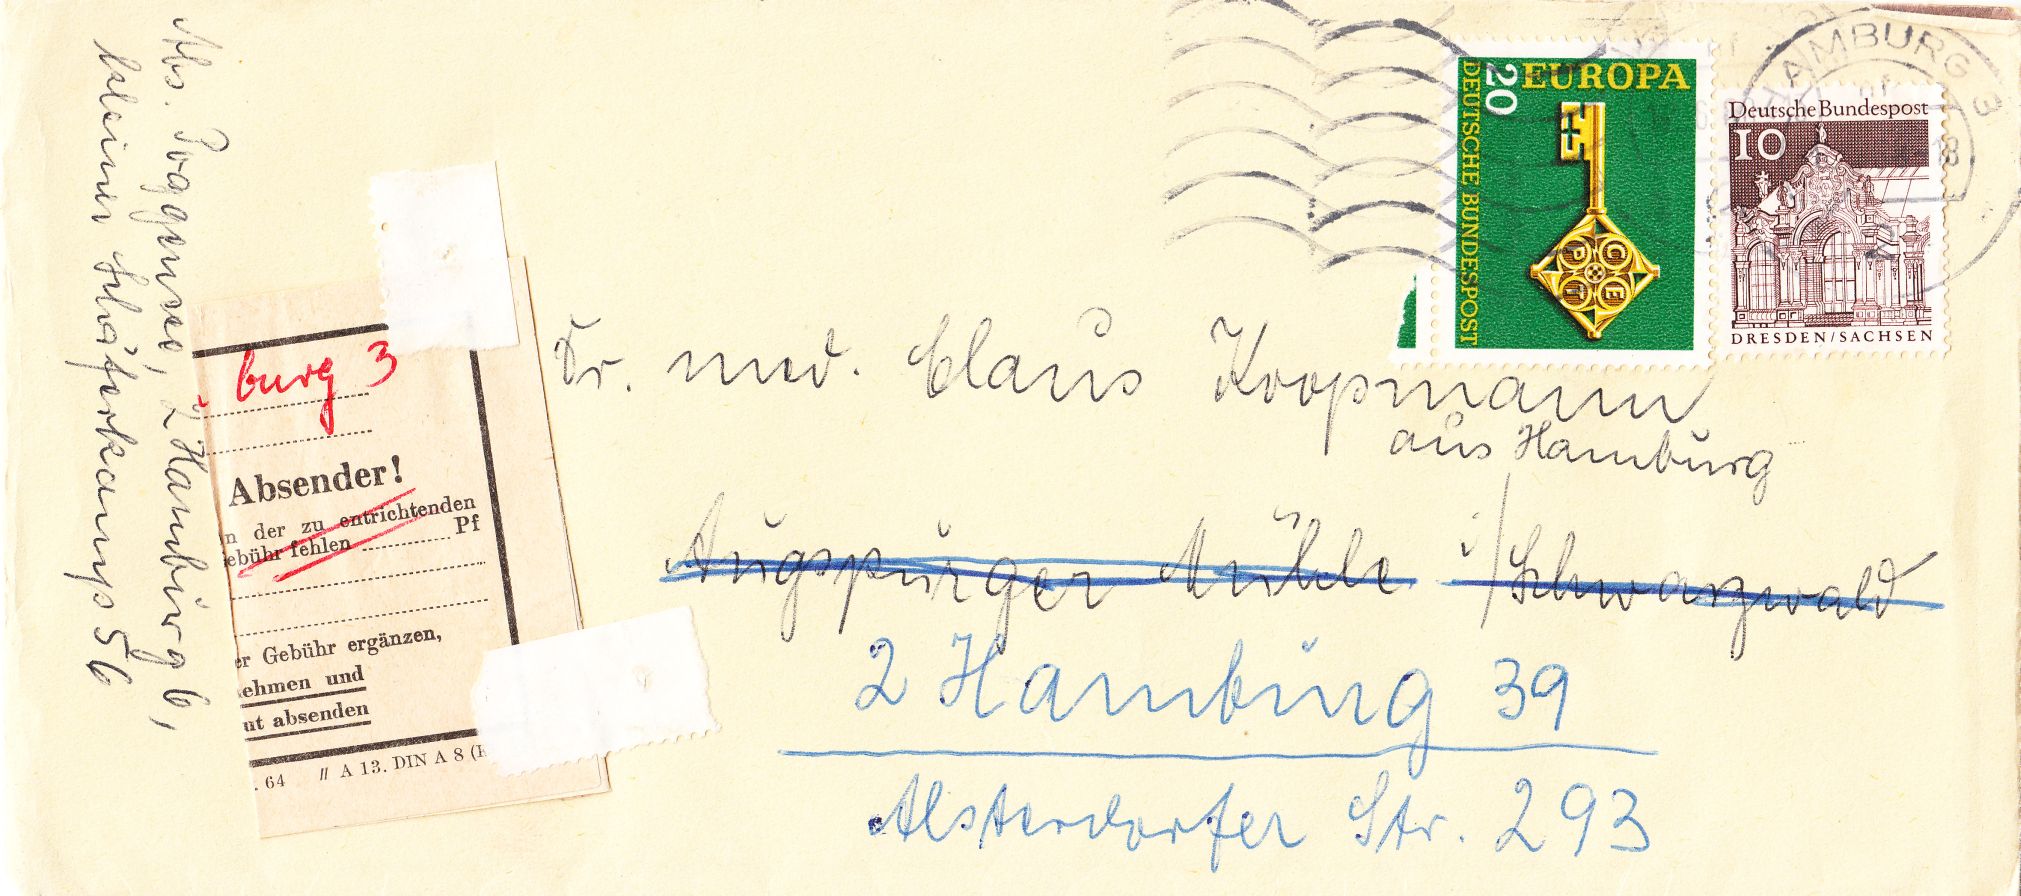 Abs. Poggensee, 2 Hamburg 6,
kleiner Schäferkamp 56
burg 3
Absender!
n der zu entrichtenden
ebühr fehlen Pf
er Gebühr ergänzen,
ehmen und
ut absenden
. 64 // A 13. DIN A 8 (
EUROPA
20
DEUTSCHE BUNDESPOST
C E
P T
HAMBURG 3
Deutsche Bundespost
10
DRESDEN/SACHSEN
Dr. med. Claus Koopmann
aus Hamburg
Augspurger Mühle i/Schwarzwald
2 Hamburg 39
Alsterdorfer Str. 293